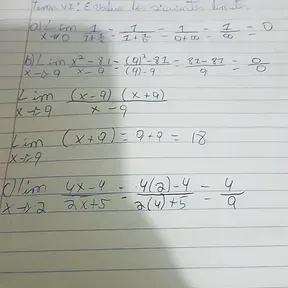 Tema VI: Evalue los siguientes limites
a) Lim x→0 1/(1+1/x) = 1/(1+1/0) = 1/(0+∞) = 1/∞ = 0
b) Lim x→9 (x²-81)/(x-9) = ((9)²-81)/((9)-9) = (81-81)/9 = 0/0
Lim x→9 ((x-9) (x+9))/(x-9)
Lim x→9 (x+9) = 9+9 = 18
c) lim x→2 (4x-4)/(2x+5) = (4(2)-4)/(2(4)+5) = 4/9